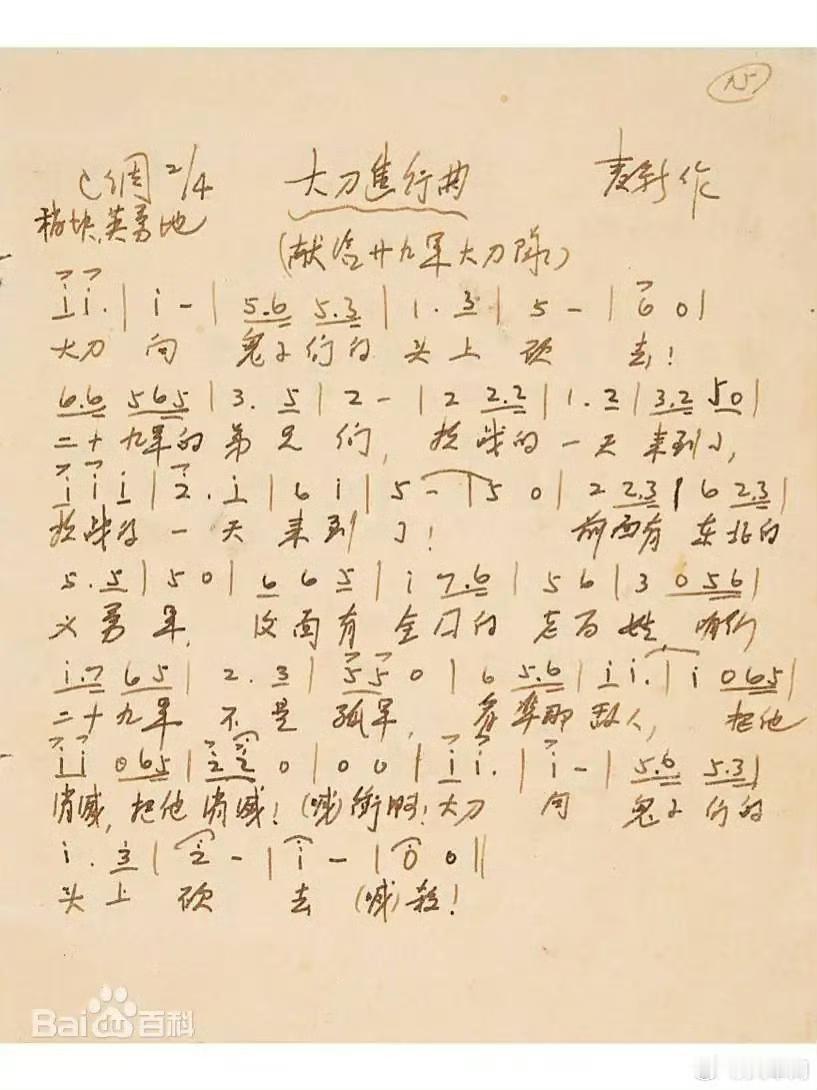 15
C调 2/4 大刀进行曲 麦新作
稍快,英勇地
(献给廿九军大刀队)
i i. | i - | 5.6 5.3 | 1. 3 | 5 - | 6 0 |
大刀 向 鬼子们的 头上 砍 去!
6.6 565 | 3. 5 | 2 - | 2 2.2 | 1. 2 | 3.2 50 |
二十九军的 弟兄们, 抗战的一天来到了,
i i i | 2. i | 6 i | 5 - | 5 0 | 2 2.3 | 6 2.3 |
抗战的一天来到了! 前面有 东北的
5. 5 | 5 0 | 6 6 5 | i 7.6 | 5 6 | 3 0 56 |
义勇军, 后面有 全国的 老百姓, 咱们
i.7 65 | 2. 3 | 55 0 | 6 5.6 | i i. | i 065 |
二十九军 不是 孤军, 看准那敌人, 把他
i i 065 | 2 2 0 | 0 0 | i i. | i - | 5.6 5.3 |
消灭, 把他消灭! (喊)冲啊! 大刀 向 鬼子们的
i. 3 | 2 - | i - | 0 0 ‖
头上 砍 去 (喊)杀!
Bai 百科